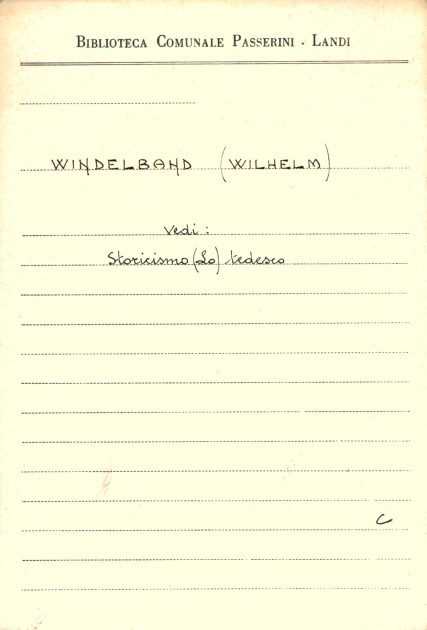 BIBLIOTECA COMUNALE PASSERINI - LANDI
WINDELBAND (WILHELM)
Vedi:
Storicismo (Lo) tedesco
C